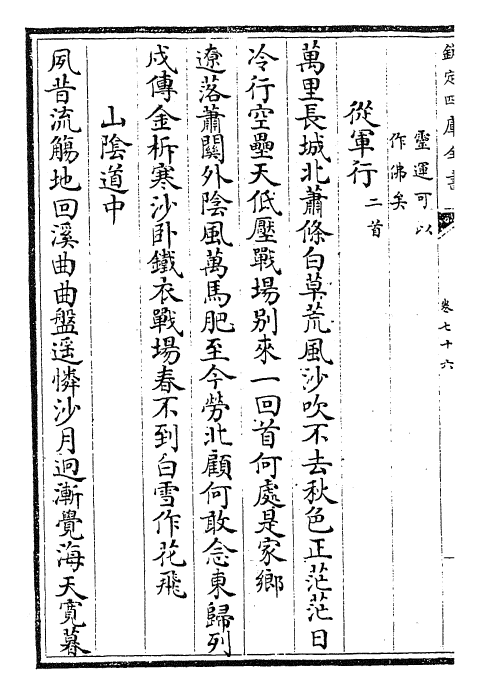 欽定四庫全書
卷七十六
靈運可以
作佛矣
從軍行二首
萬里長城北蕭條白草荒風沙吹不去秋色正茫茫日
冷行空壘天低壓戰場别來一回首何處是家鄉
遼落蕭關外陰風萬馬肥至今勞北顧何敢念東歸列
戍傳金柝寒沙卧鐵衣戰場春不到白雪作花飛
山陰道中
夙昔流觴地回溪曲曲盤遥憐沙月迥漸覺海天寛暮